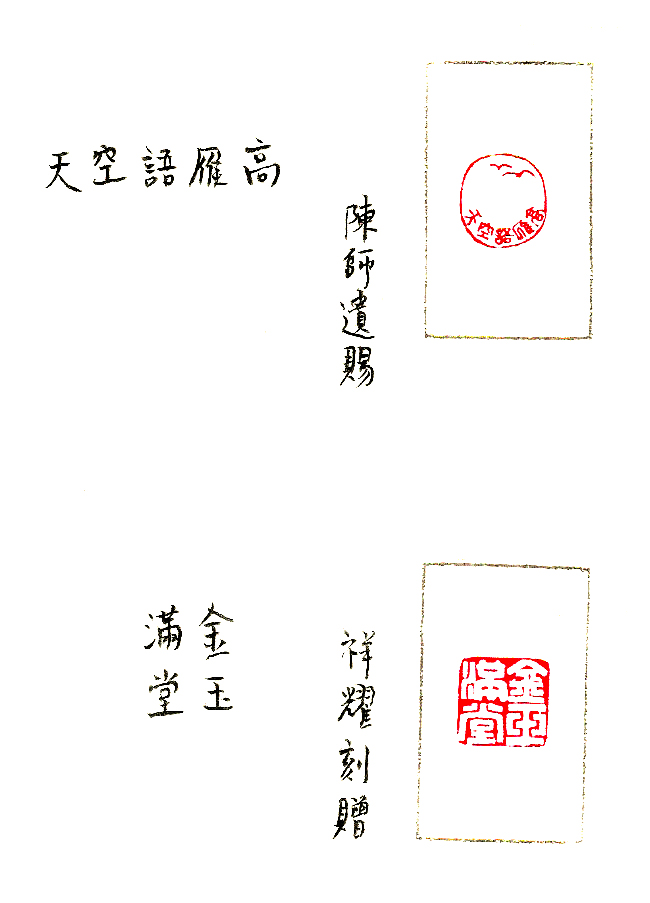 天空語雁高
陳師遺賜
天空語雁高
金玉
滿堂
祥耀刻贈
金玉
滿堂